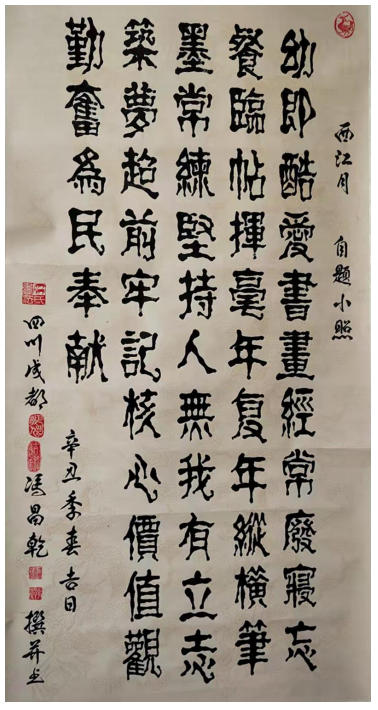 西江月 自题小照
幼即酷愛書畫經常廢寢忘
餐臨帖揮毫年复年縱橫筆
墨常練堅持人無我有立志
築夢超前牢記核心價值觀
勤奮為民奉献
辛丑季春吉日
四川成都 馮昌乾 撰并书